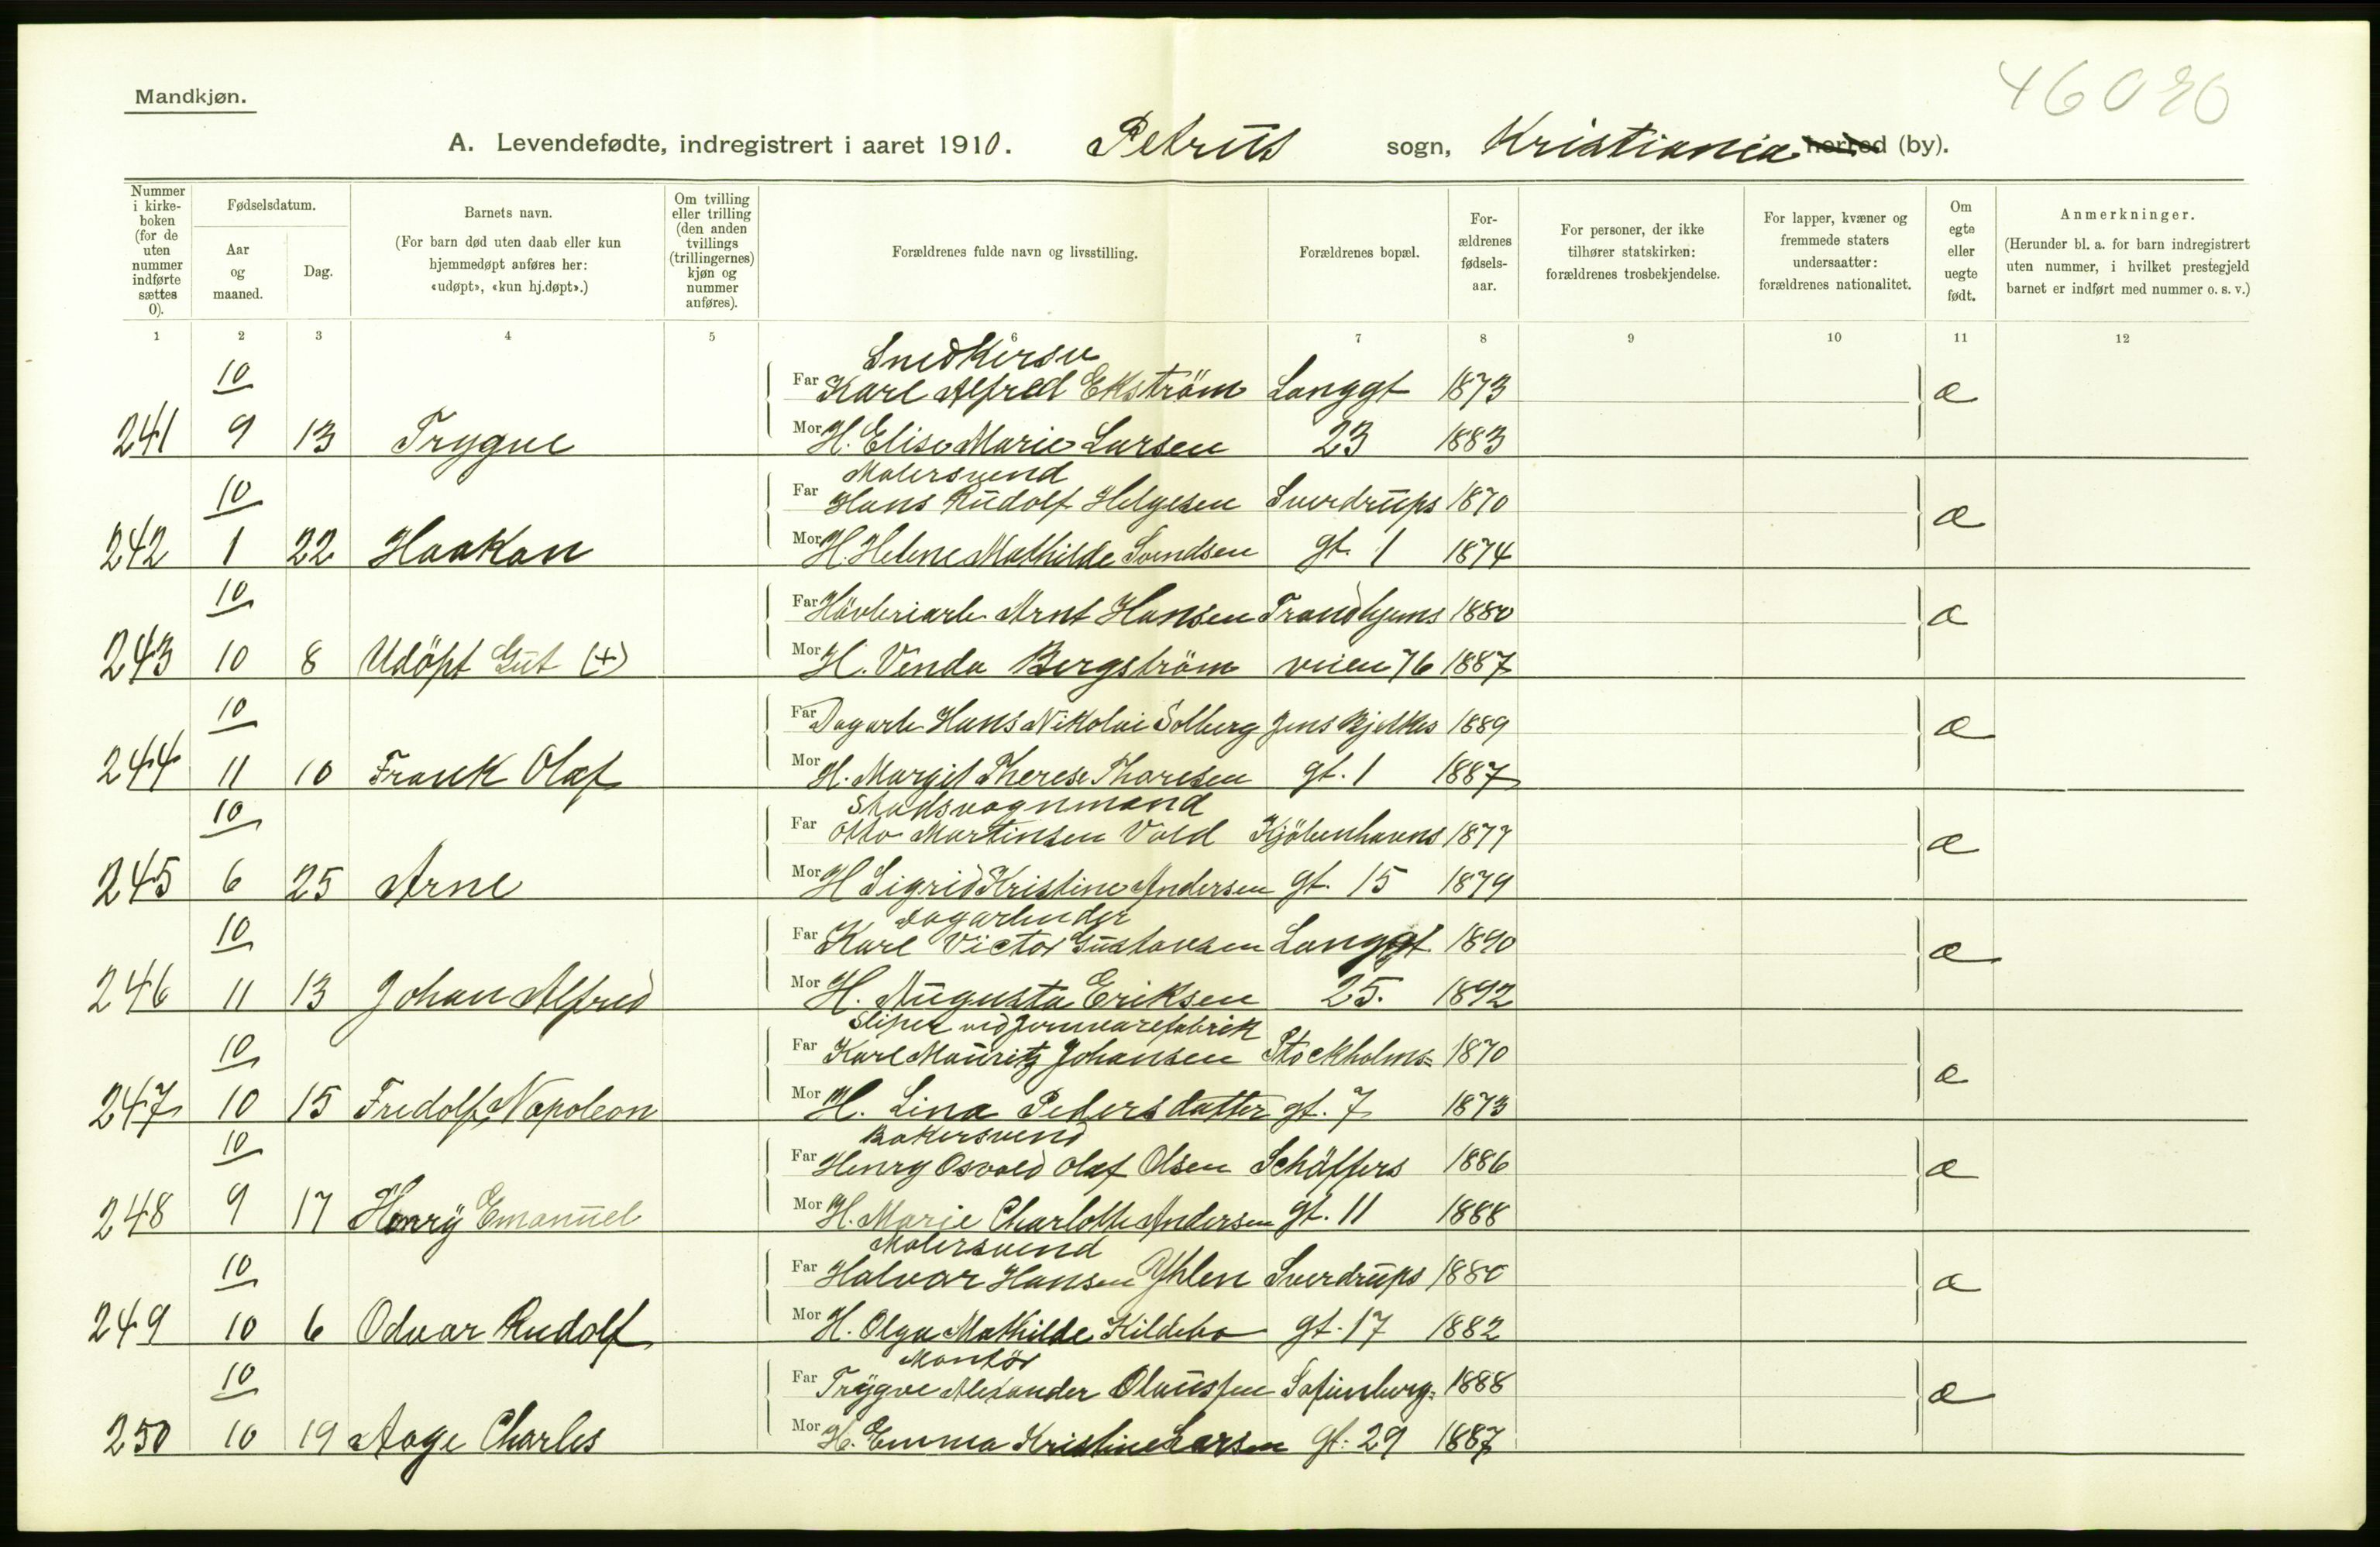 46020
Mandkjøn.
A. Levendefødte, indregistrert i aaret 1910. Petrus sogn, Kristiania herred (by).
Nummer i kirkeboken (for de uten nummer indførte sættes 0).
Fødselsdatum.
Aar og maaned.
Dag.
Barnets navn.
(For barn død uten daab eller kun hjemmedøpt anføres her: «udøpt», «kun hj.døpt».)
Om tvilling eller trilling (den anden tvillings (trillingernes) kjøn og nummer anføres).
Forældrenes fulde navn og livsstilling.
Forældrenes bopæl.
For-ældrenes fødsels-aar.
For personer, der ikke tilhører statskirken: forældrenes trosbekjendelse.
For lapper, kvæner og fremmede staters undersaatter: forældrenes nationalitet.
Om egte eller uegte født.
Anmerkninger.
(Herunder bl. a. for barn indregistrert uten nummer, i hvilket prestegjeld barnet er indført med nummer o. s. v.)
1 2 3 4 5 6 7 8 9 10 11 12
Snedkersv
10 Far Karl Alfred Ekström Langgt 1873 æ
241 9 13 Trygve Mor H. Elise Marie Larsen 23 1883
Malersvend
10 Far Hans Rudolf Helgesen Sverdrups 1870 æ
242 1 22 Haakon Mor H. Helene Mathilde Svendsen gt. 1 1874
10 Far Hövleriarb. Arnt Hansen Trondhjems 1880 æ
243 10 8 Udöpt Gut (+) Mor H. Venda Bergström veien 76 1887
10 Far Dagarb. Hans Nikolai Solberg Jens Bjelkes 1889 æ
244 11 10 Frank Olaf Mor H. Margit Therese Thoresen gt. 1 1887
Stadsvognmand
10 Far Otto Martinsen Vold Kjöbenhavns 1877 æ
245 6 25 Arne Mor H Sigrid Kristine Andersen gt. 15 1879
Dagarbeider
10 Far Karl Victor Gustavsen Langgt. 1890 æ
246 11 13 Johan Alfred Mor H. Augusta Eriksen 25. 1892
Sliper ved Jernvarefabrik
10 Far Karl Mauritz Johansen Stockholms= 1870 æ
247 10 15 Fridolf Napoleon Mor H. Lina Pedersdatter gt. 7 1873
Bakersvend
10 Far Henry Osvald Olaf Olsen Schäffers 1886 æ
248 9 17 Henry Emanuel Mor H. Marie Charlotte Andersen gt. 11 1888
Malersvend
10 Far Halvar Hansen Yhlen Sverdrups 1880 æ
249 10 6 Odvar Rudolf Mor H. Olga Mathilde Kildebo gt. 17 1882
Montör
10 Far Trygve Alexander Olaussen Sofienberg= 1888 æ
250 10 19 Aage Charles Mor H. Emma Kristine Larsen gt. 29 1887